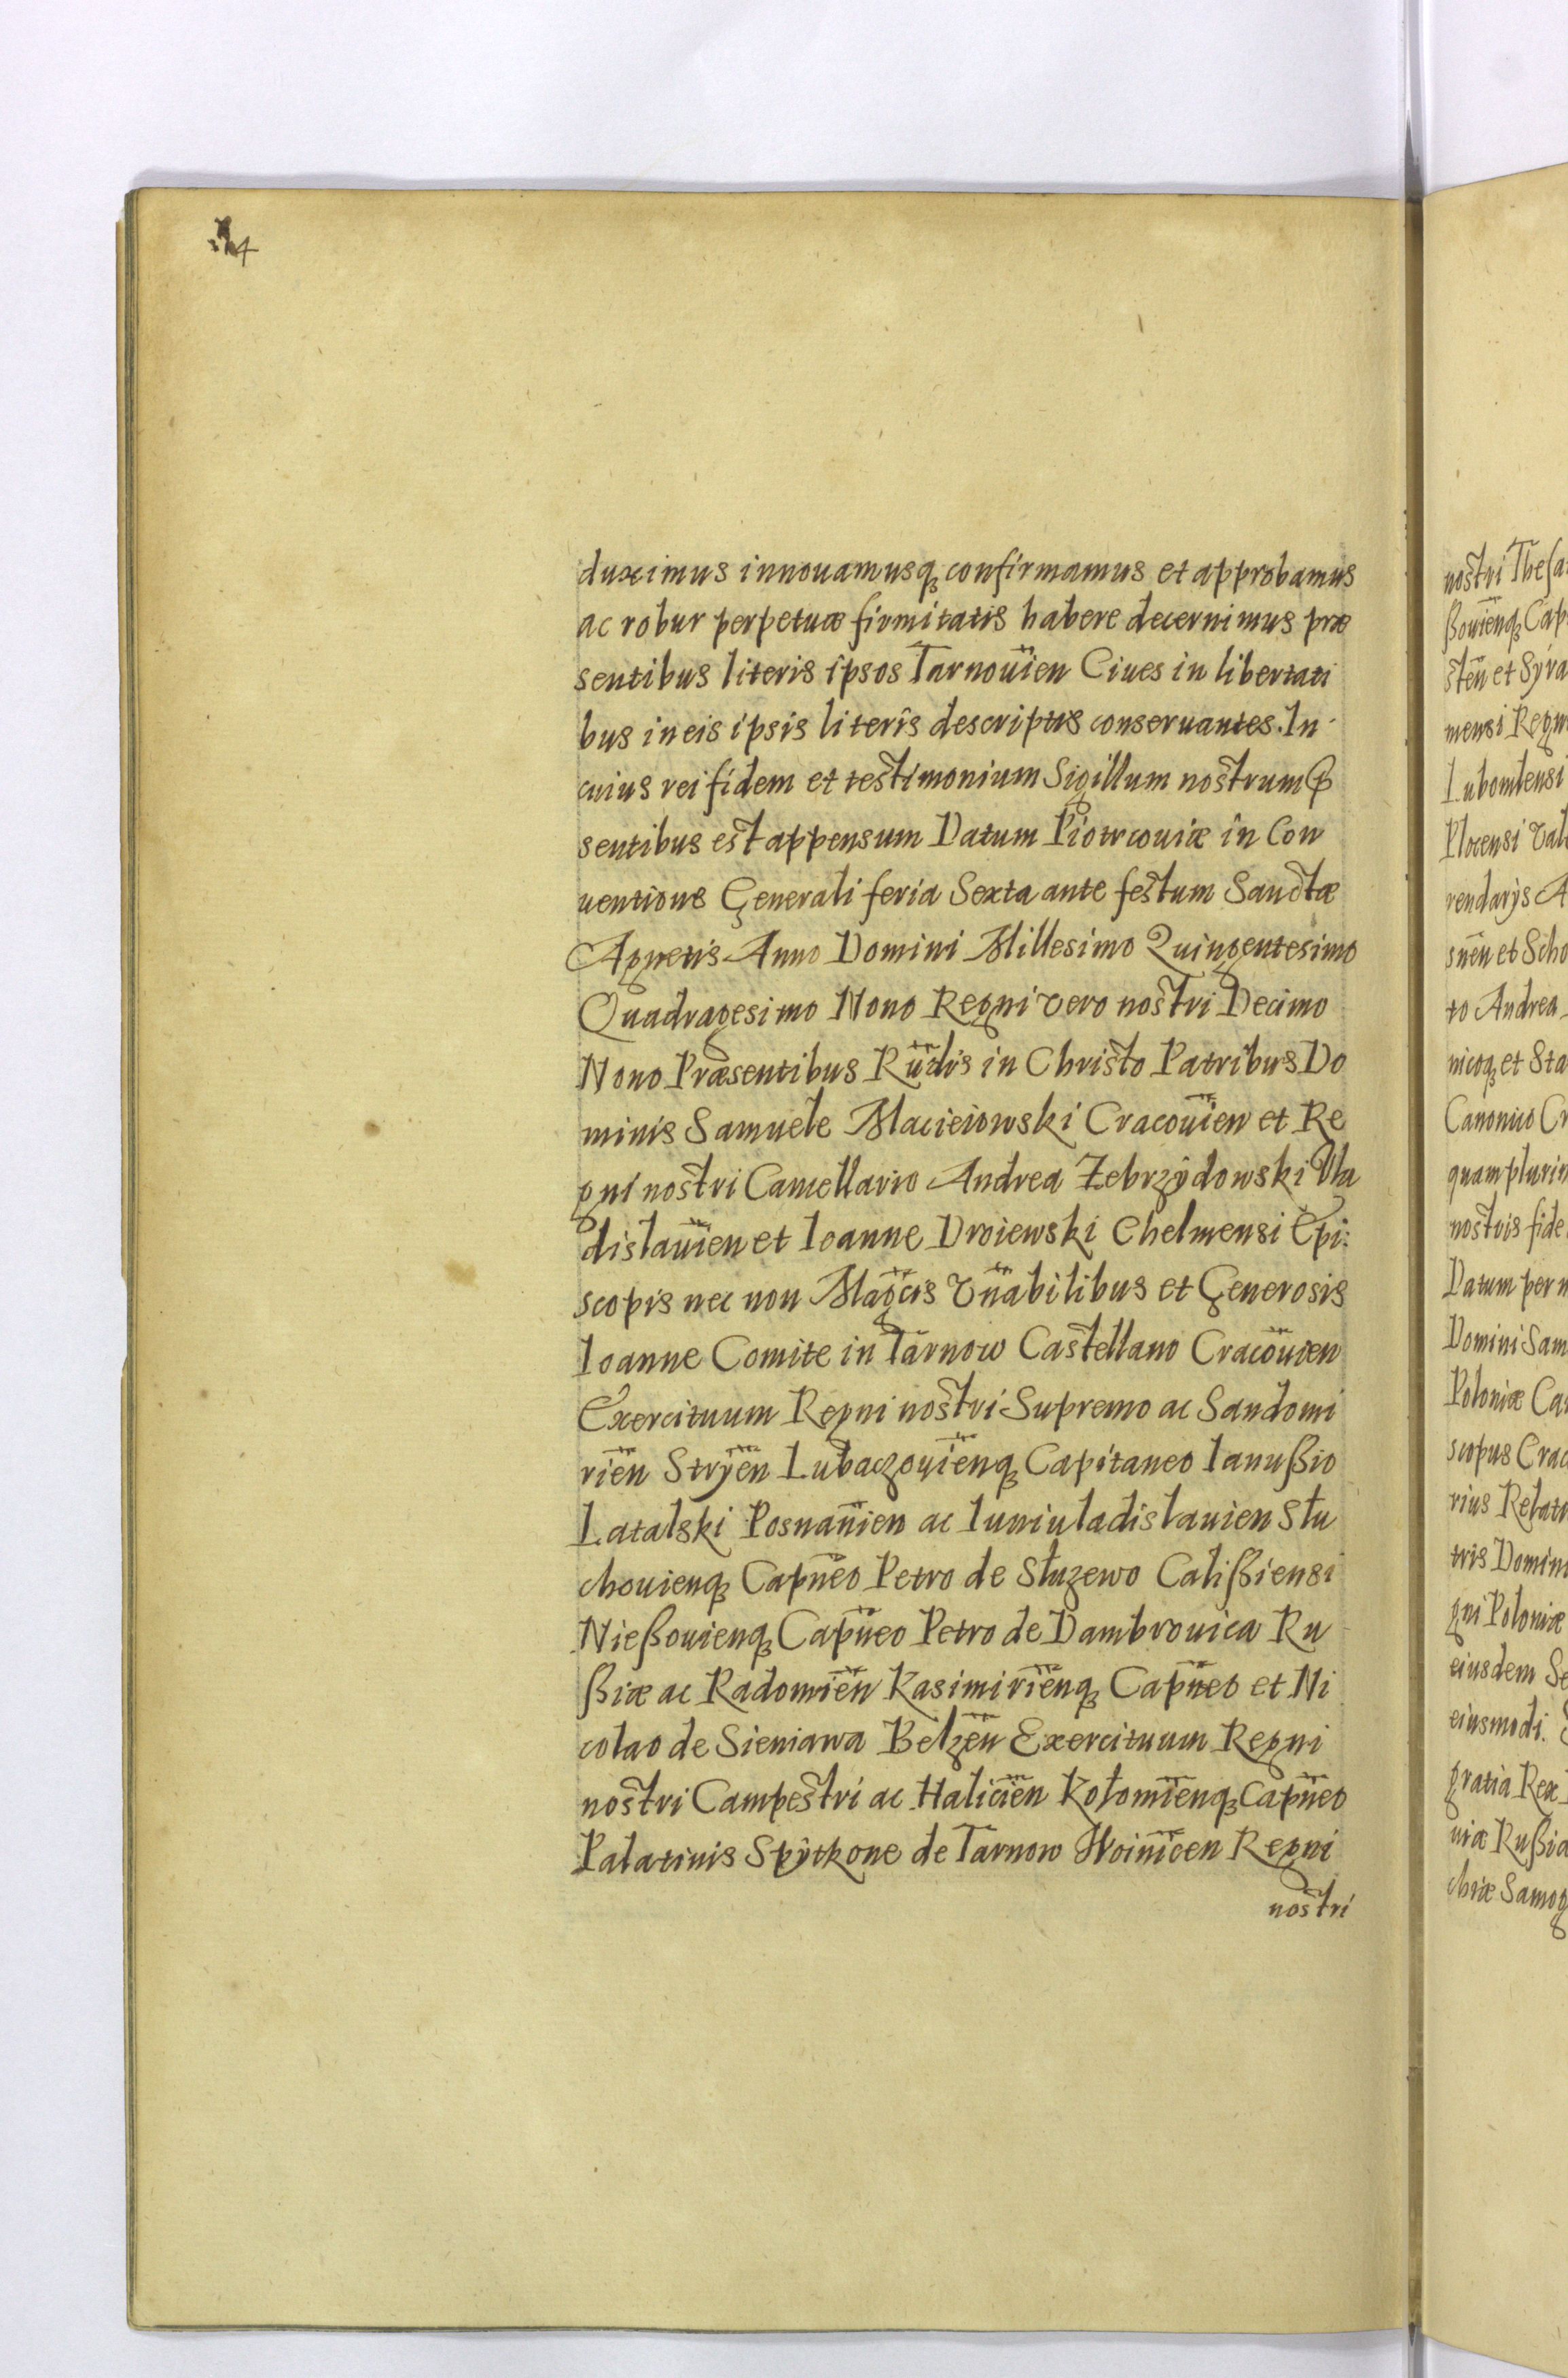 duximus innouamusq confirmamus et approbamus
ac robur perpetuæ firmitatis habere decernimus præ
sentibus literis ipsos Tarnouien Ciues in libertati
bus in eis ipsis literis descriptis conseruantes. In
cuius rei fidem et testimonium Sigillum nostrum
sentibus est appensum Datum Piotrcouiæ in Con
uentione Generali feria Sexta ante festum Sanctæ
Agnetis Anno Domini Millesimo Quingentesimo
Quadragesimo Nono Regni vero nostri Decimo
Nono Præsentibus Rndis in Christo Patribus Do
minis Samuele Macieiowski Cracouien et Re
gni nostri Cancellario Andrea Zebrzydowski Vla
dislauien et Ioanne Droiewski Chelmensi Epi:
scopis nec non Magcis Vnabilibus et Generosis
Ioanne Comite in Tarnow Castellano Cracouien
Exercituum Regni nostri Supremo ac Sandomi
rien Stryen Lubaczouienq Capitaneo Ianußio
Latalski Posnanien ac Iuniuladislauien Słu
chouienq Capneo Petro de Służewo Calißiensi
Nießouienq Capneo Petro de Dambrouica Ru
ßiæ ac Radomien Kasimirienq Capneo et Ni
colao de Sieniawa Belzen Exercituum Regni
nostri Campestri ac Halicien Kołomienq Capneo
Palatinis Spytkone de Tarnow Woinicen Regni
nostri
nostri
ßouienq Cap
sten et Syra
mensi Regn
Lubomlensi
Plocensi Val
rendarys A
snen et Scho
to Andrea
nicoq et Sta
Canonico Cr
quamplurim
nostris fide
Datum per m
Domini Sam
Poloniæ Can
scopus Crac
rius Relat
tris Domini
gni Poloniæ
eiusdem Se
eiusmodi.
gratia Rex
niæ Rußia
chiæ Samog